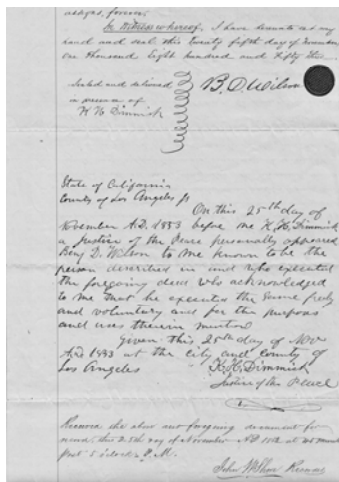 assigns, forever.
In Witness whereof, I have hereunto set my
hand and seal this twenty fifth day of November
one thousand eight hundred and fifty three.
Sealed and delivered
in presence of
K H Dimmick
B. D. Wilson
State of California
County of Los Angeles
On this 25th day of
November A.D. 1853 before me K. H. Dimmick
a Justice of the Peace personally appeared
Benj D. Wilson to me known to be the
person described in and who executed
the foregoing deed who acknowledged
to me that he executed the same freely
and voluntary and for the purposes
and uses therein
Given this 25th day of Nov
A.D. 1853 at the city and County of
Los Angeles
K. H. Dimmick
Justice of the Peace
the above and foregoing document for
record, this 25th day of November A.D. at
past 5 o'clock P.M.
John W Shore